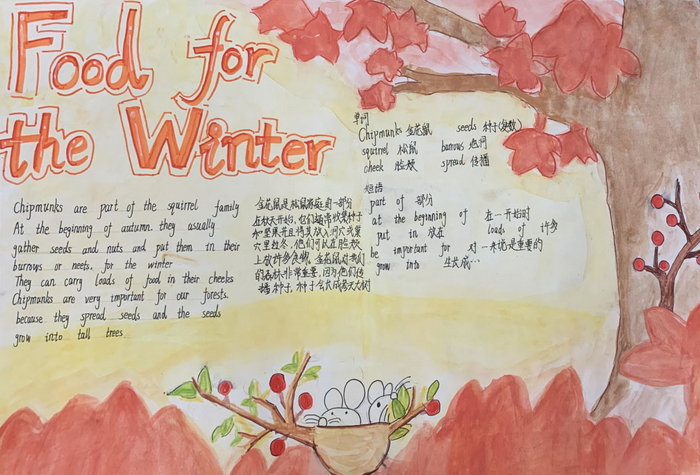 Food for
the Winter
Chipmunks are part of the squirrel family
At the beginning of autumn. they usually
gather seeds and nuts and put them in their
burrows or neets. for the winter
They can carry loads of food in their cheeks
Chipmunks are very important for our forests.
because they spread seeds and the seeds
grow into tall trees
金花鼠是松鼠家庭的一部分
在秋天开始，它们通常收集种子
和坚果并且将其放入洞穴或巢
穴里过冬。他们可以在脸颊
上放许多食物。金花鼠对我们
的森林非常重要，因为他们传
播种子，种子会长成参天大树
单词
Chipmunks 金花鼠 seeds 种子(复数)
squirrel 松鼠 burows 地洞
cheek 脸颊 spread 传播
短语
part of 部分
at the beginning of 在一开始时
put in 放在 loads of 许多
be important for 对一来说是重要的
grow into 生长成…